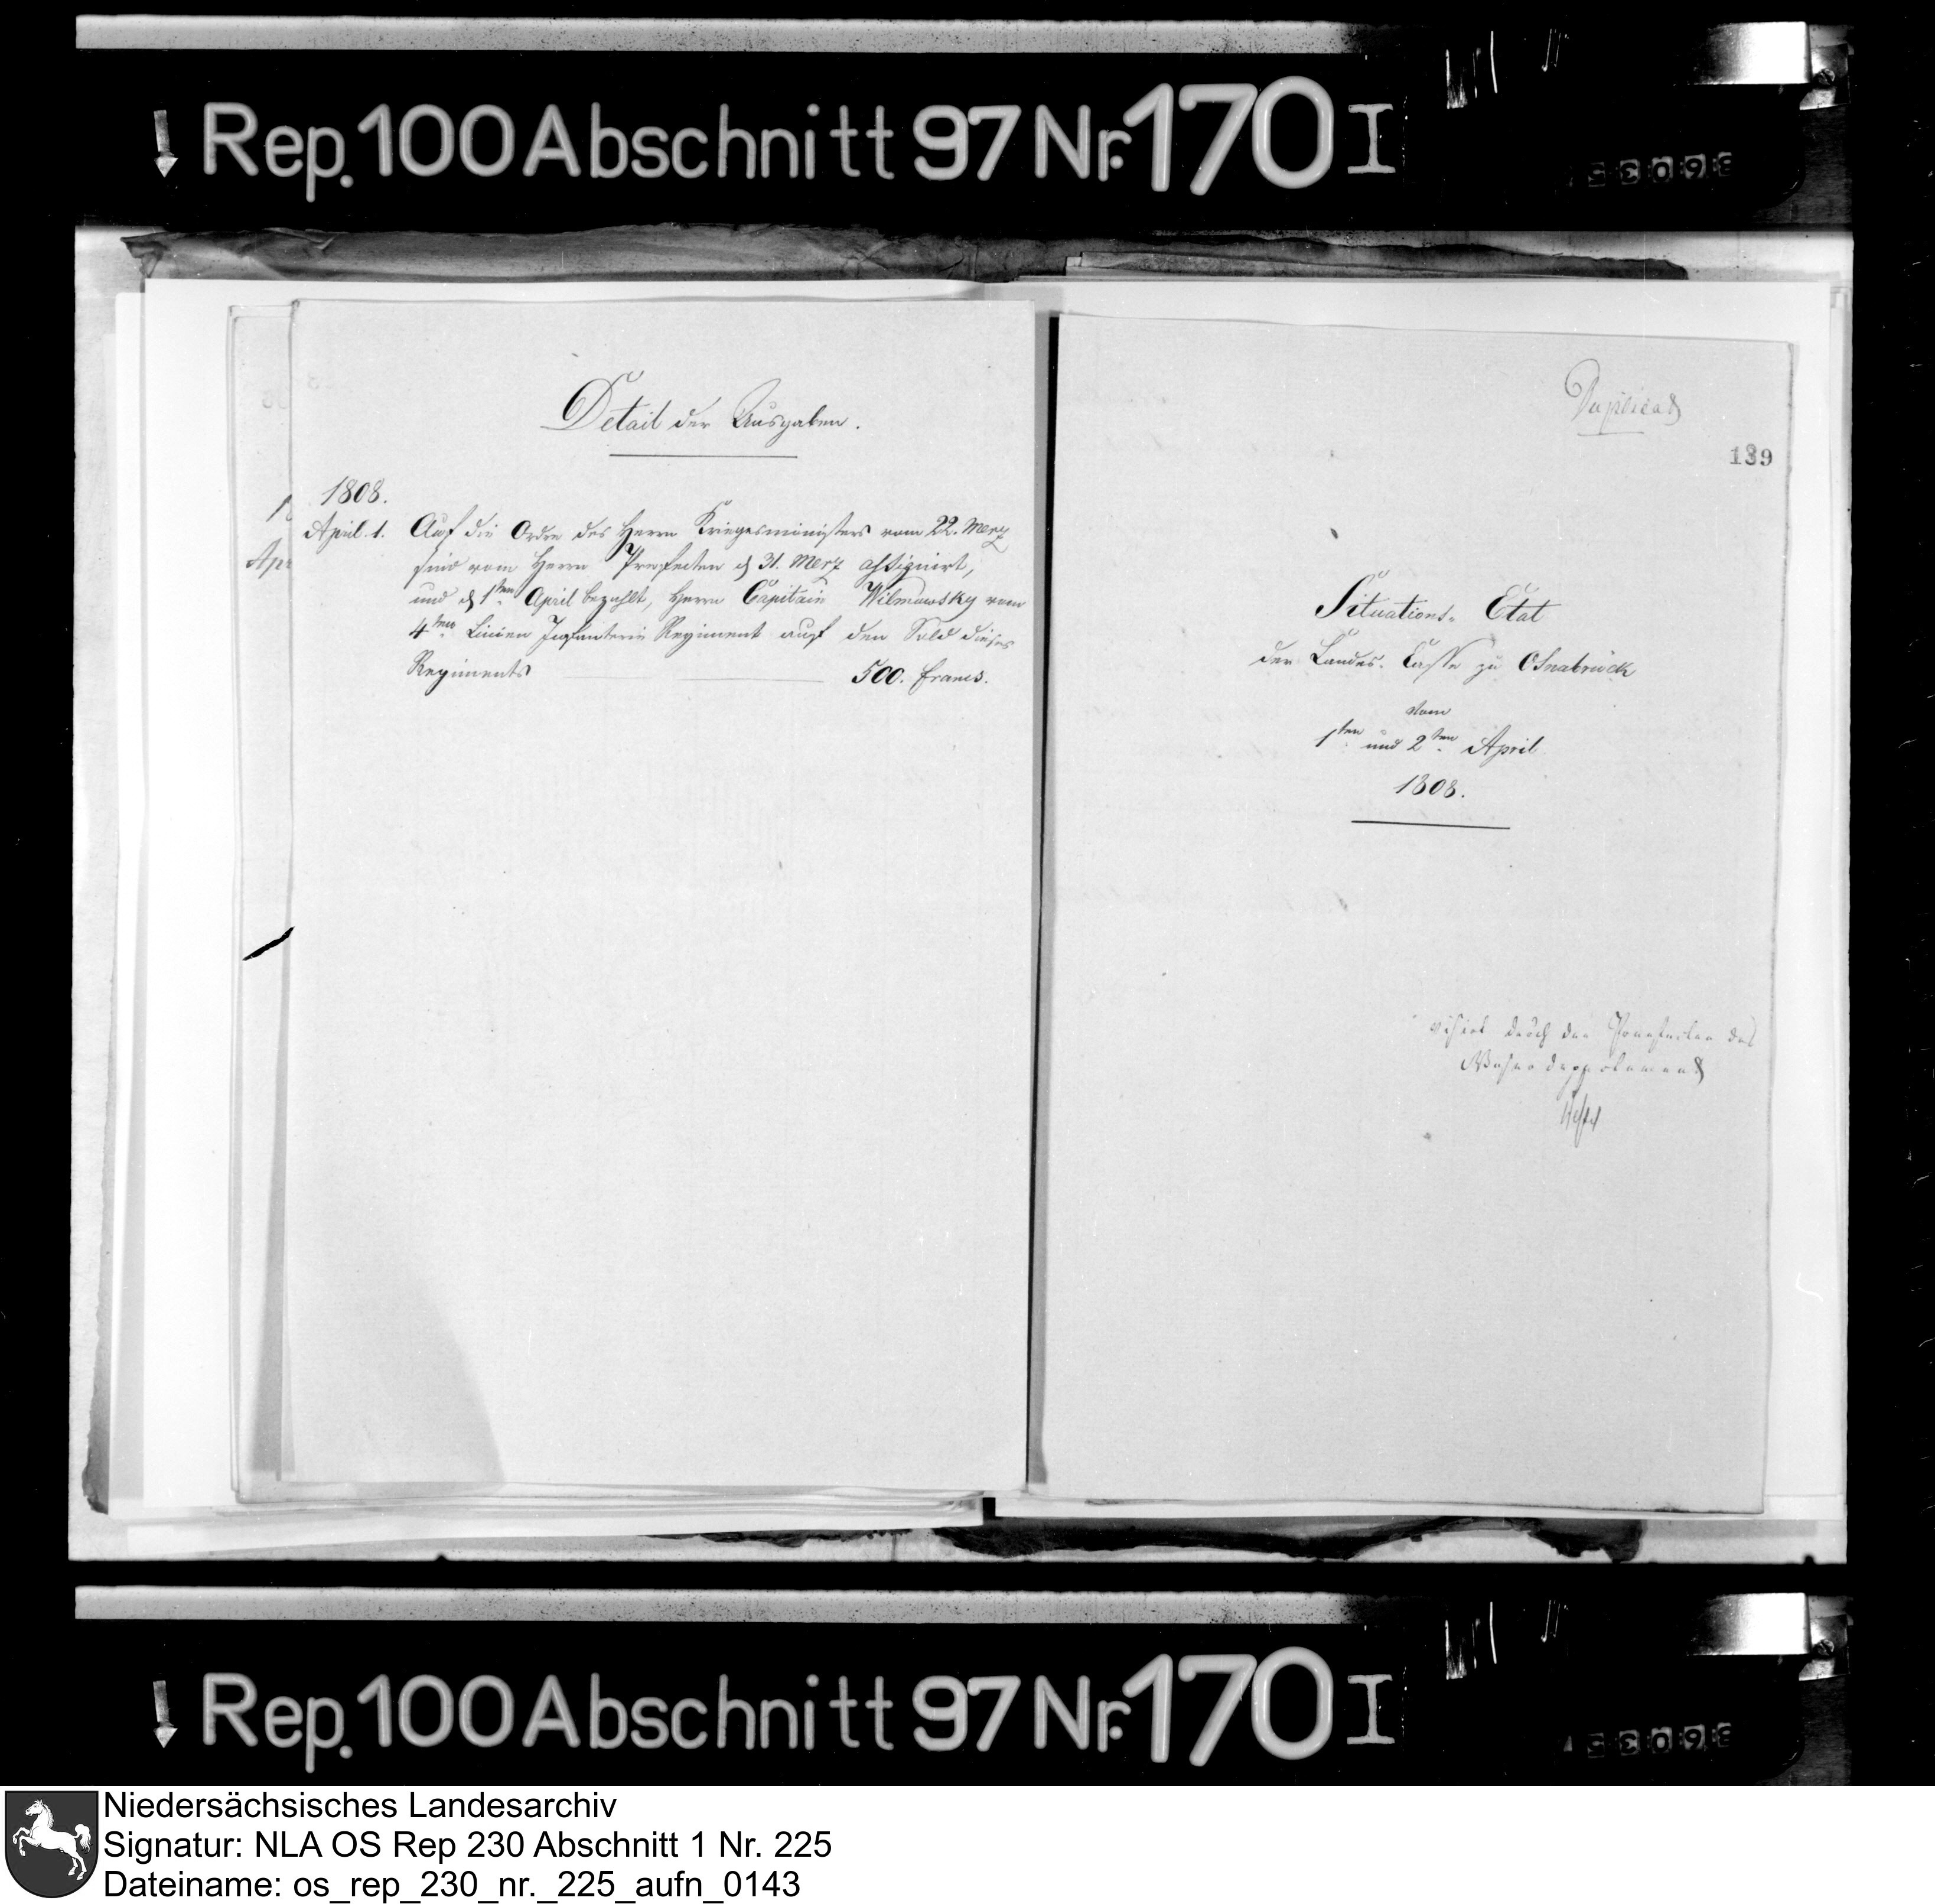 Rep. 100 Abschnitt 97 Nr. 170 I
Detail der Ausgaben.
1808.
April. 1. Auf die Ordre des Herrn Kriegesministers vom 22. Merz
sind vom Herrn Praefecten d 31. Merz assignirt,
und d 1ten April bezahlt, Herrn Capitain Wilmowsky vom
4ten Linien Infanterie Regiment auf den Sold dieses
Regiments 500. francs.
Duplicat
139
Situations- Etat
der Landes- Casse zu Osnabrück
vom
1ten und 2ten April
1808.
visirt durch den Praefecten des
Weserdepartements
Rep. 100 Abschnitt 97 Nr. 170 I
Niedersächsisches Landesarchiv
Signatur: NLA OS Rep 230 Abschnitt 1 Nr. 225
Dateiname: os_rep_230_nr._225_aufn_0143